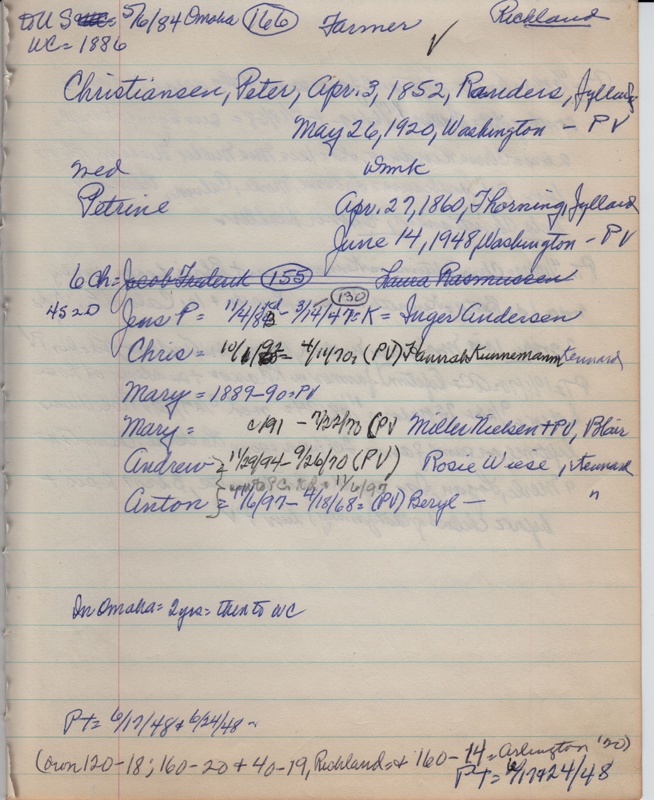 to US 5/6/84 Omaha (166) Farmer Richland
WC = 1886 ✓
Christiansen, Peter, Apr. 3, 1852, Randers, Jylland
May 26, 1920, Washington - PV
wed Dmk
Petrine Apr. 27, 1860, Thorning, Jylland
June 14, 1948, Washington - PV
6 ch = Jacob Frederik (155) Laura Rasmussen
4S 2D Jens P = 11/4/83 - 3/15/47 = K = (130) Inger Andersen
Chris = 10/1/ = 4/11/70 = (PV) Hannah Kunnemann Kennard
Mary = 1889-90 = PV
Mary = c/91 - 7/22/73 (PV Miller Nielsen + PV, Blair
Andrew = 11/29/94 - 9/26/70 (PV) Rosie Wiese, Kennard
11/6/97
Anton = 16/97 - 4/18/68 = (PV) Beryl - "
In Omaha = 2 yrs = then to WC
PT = 6/17/48 + 6/24/48 -
(own 120-18; 160-20 + 40-19, Richland = + 160-14 = Arlington '20)
PT = 6/17+24/48